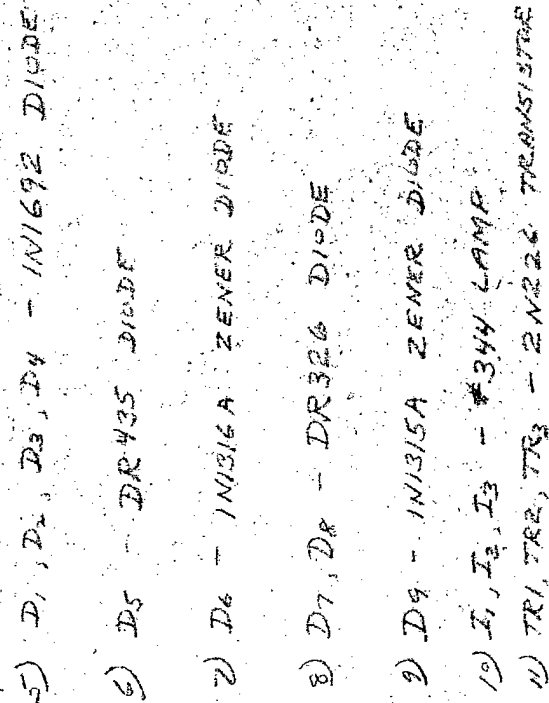 5) D1, D2, D3, D4 - 1N1692 DIODE
6) D5 - DR435 DIODE
7) D6 - 1N1316A ZENER DIODE
8) D7, D8 - DR326 DIODE
9) D9 - 1N1315A ZENER DIODE
10) I1, I2, I3 - #344 LAMP
11) TR1, TR2, TR3 - 2N226 TRANSISTOR